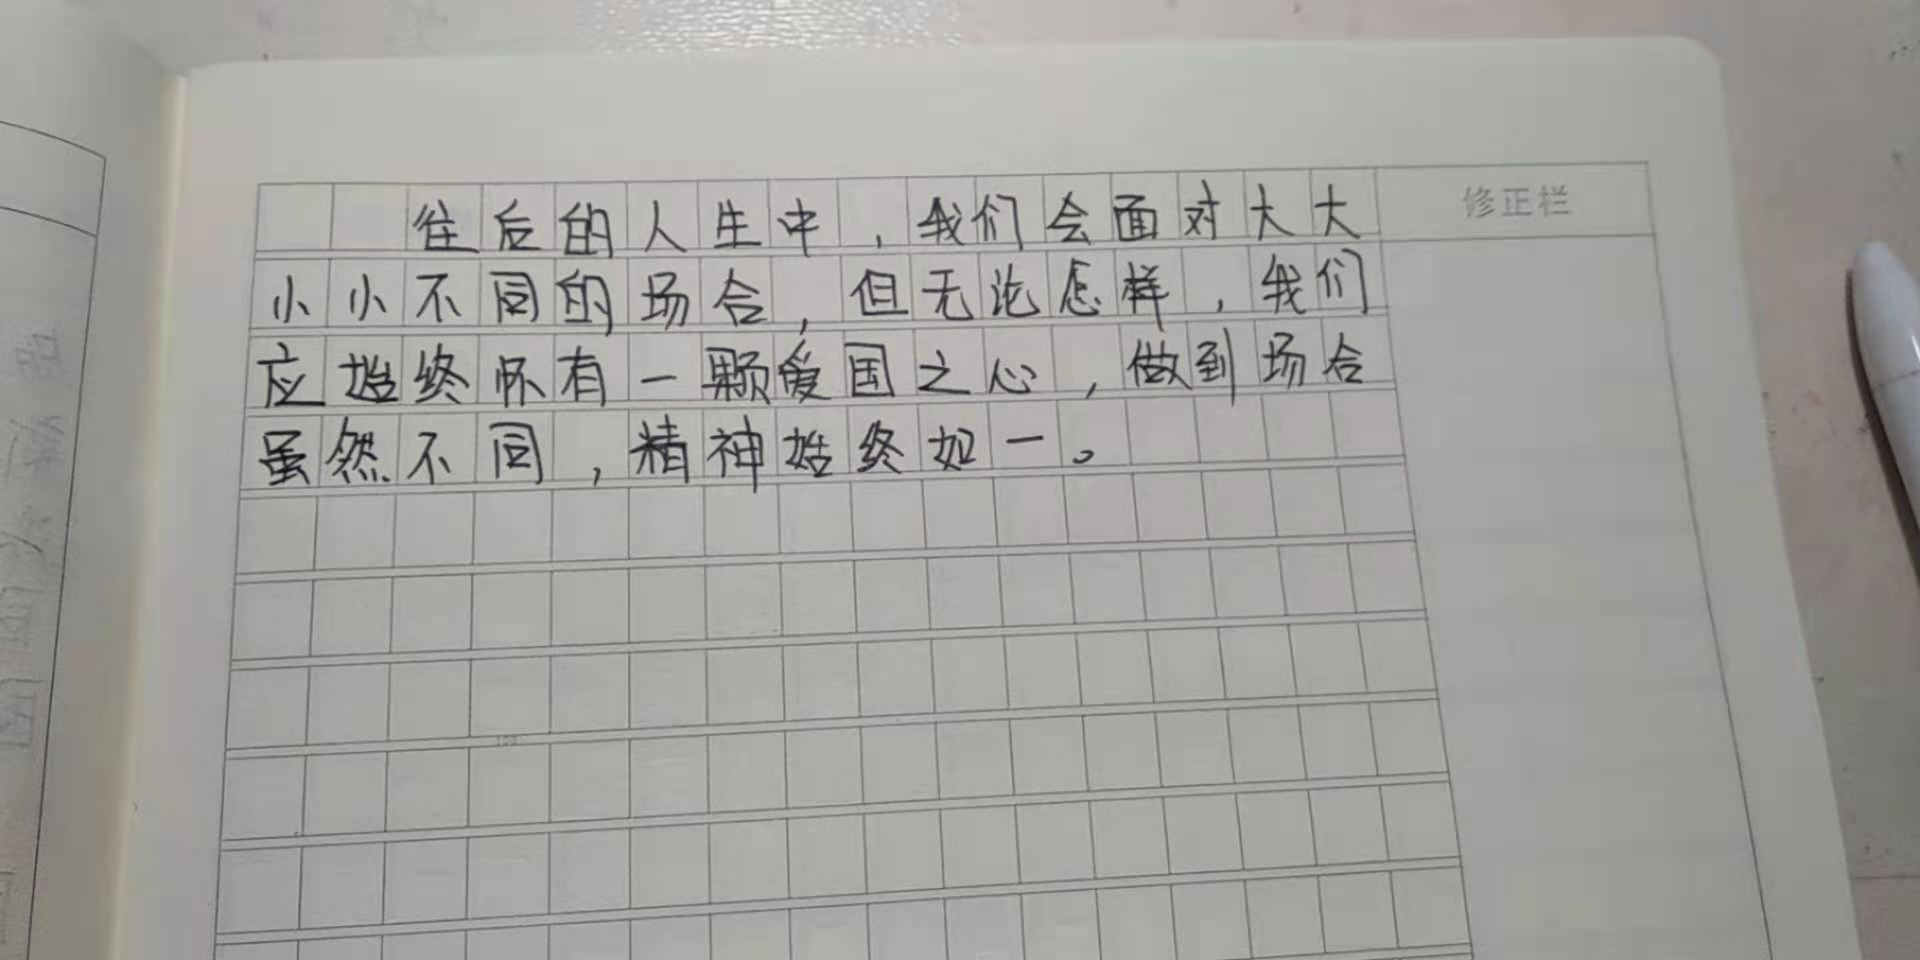 往后的人生中,我们会面对大大
修正栏
小小不同的场合,但无论怎样,我们
应始终怀有一颗爱国之心,做到场合
虽然不同,精神始终如一。